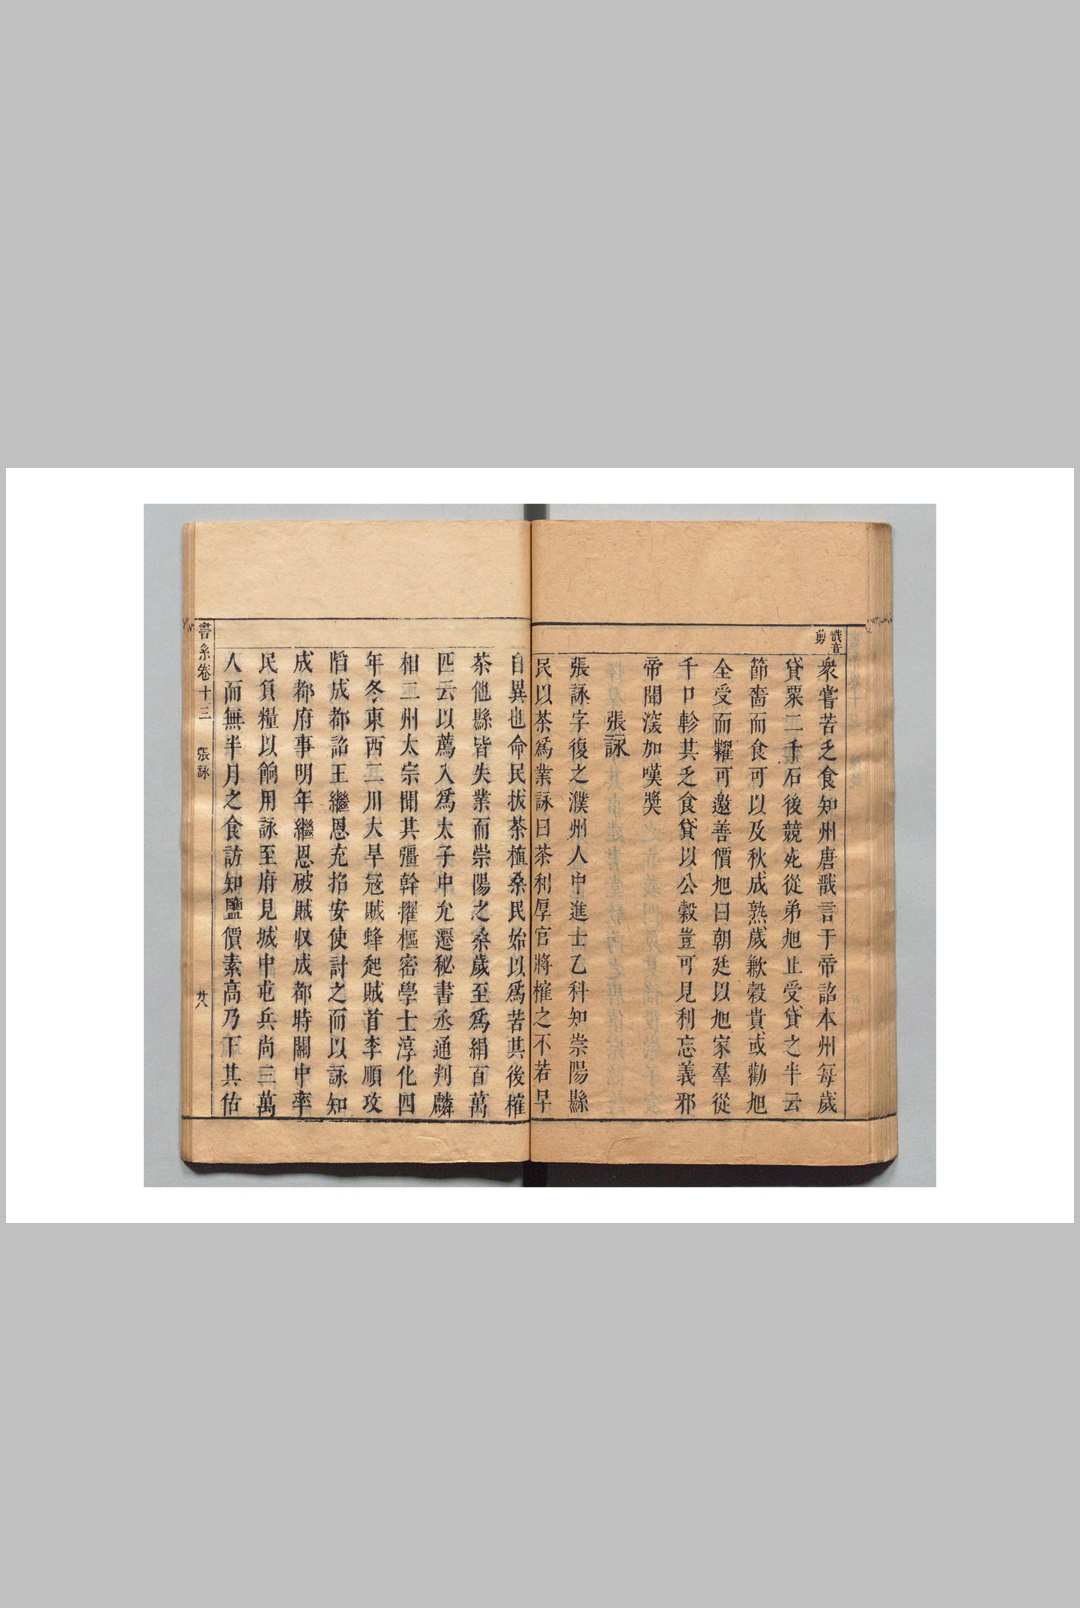 戩音
剪
衆嘗苦乏食知州唐戩言于帝詔本州每歲
貸粟二千石後競死從弟旭止受貸之半云
節嗇而食可以及秋成熟歲歉穀貴或勸旭
全受而糶可邀善價旭曰朝廷以旭家羣從
千口軫其乏食貸以公穀豈可見利忘義邪
帝聞深加嘆奬
張詠
張詠字復之濮州人中進士乙科知崇陽縣
民以茶爲業詠曰茶利厚官將榷之不若早
自異也命民拔茶植桑民始以爲苦其後榷
茶他縣皆失業而崇陽之桑歲至爲絹百萬
匹云以薦入爲太子中允遷秘書丞通判麟
相二州太宗聞其彊幹擢樞密學士淳化四
年冬東西二川大旱冦賊蜂起賊首李順攻
䧟成都詔王繼恩充招安使討之而以詠知
成都府事明年繼恩破賊收成都時關中率
民負糧以餉用詠至府見城中屯兵尚三萬
人而無半月之食訪知鹽價素高乃下其估
書系卷十三 張詠 廿八